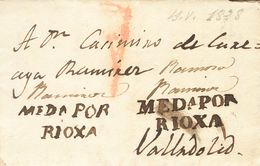 1838
A Dn. Casimiro de Caze-
aga Ramirez Ramirez
Ramirez Ramirez
MEDA POR
RIOXA
MEDA POR
RIOXA
Valladolid.